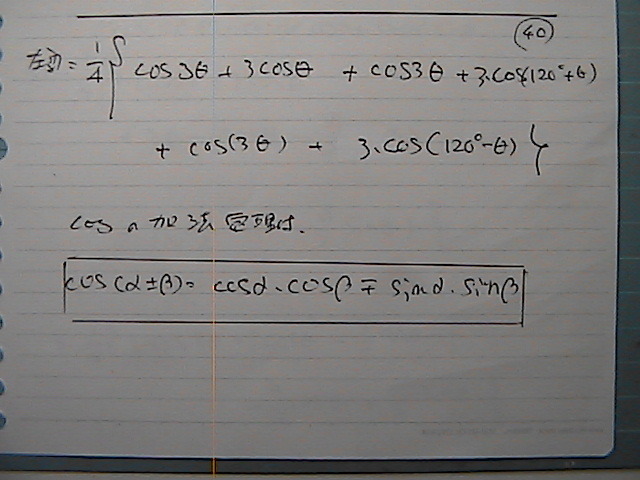 40
左辺 = 1/4 { cos3θ + 3cosθ + cos3θ + 3·cos(120°+θ)
+ cos(3θ) + 3·cos(120°-θ) }
cos の 加法定理は、
cos(α±β) = cosα·cosβ ∓ sinα·sinβ